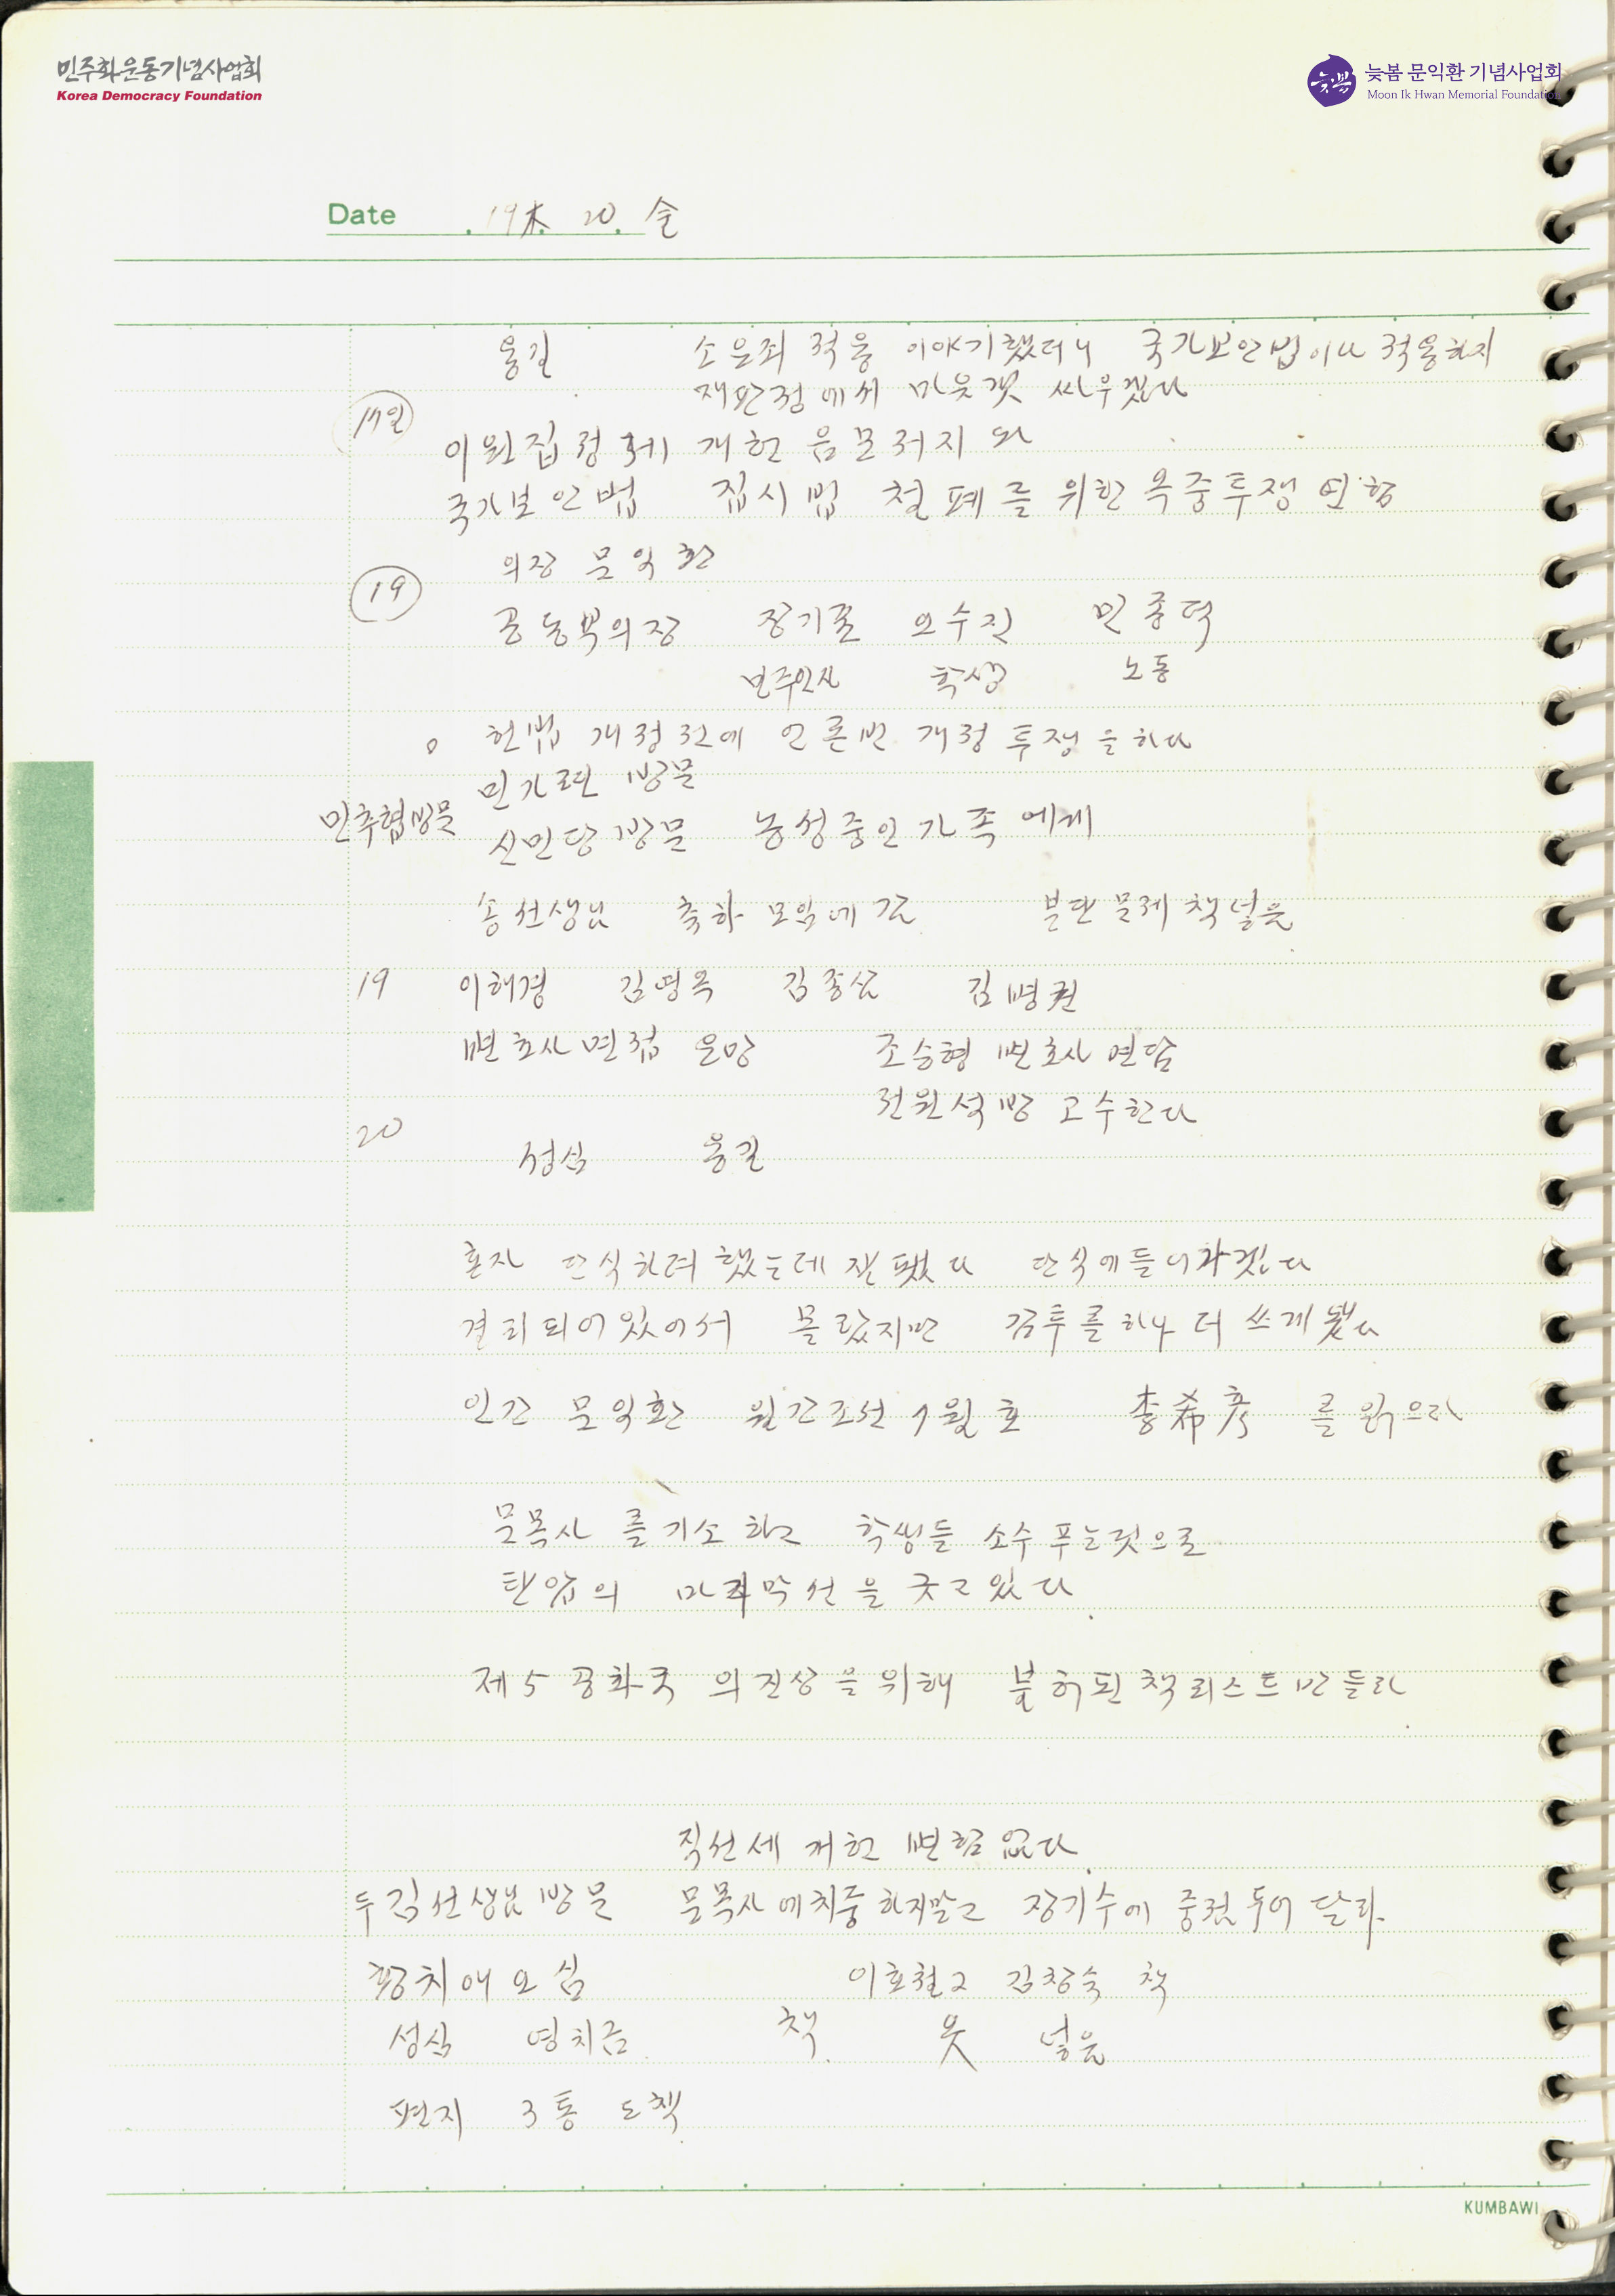 민주화운동기념사업회
Korea Democracy Foundation
늦봄 문익환 기념사업회
Moon Ik Hwan Memorial Foundation
Date 19木 20. 金
용길 소요죄 적용 이야기했더니 국가보안법이나 적용하지
재판정에서 마음껏 싸우겠다
17일
이원집정제 개헌 음모저지와
국가보안법 집시법 철폐를 위한 옥중투쟁 연합
의장 문익환
19
공동부의장 장기표 오수진 민종덕
민주인사 학생 노동
○ 헌법 개정전에 언론법 개정 투쟁을 하다
민가협 방문
민추협방문
신민당 방문 농성중인 가족에게
송선생님 축하 모임에 감 분단문제 책 넣음
19 이해경 김영옥 김종삼 김병권
변호사 면접 은망 조승형 변호사 면담
전원석방 고수한다
20 성심 용길
혼자 단식하려 했는데 잘됐다 단식에 들어가겠다
격리되어 있어서 몰랐지만 감투를 하나 더 쓰게 됐다
인간 문익환 월간조선 1월호 李希彦 를 읽으라
문목사를 기소하고 학생들 소수 푸는것으로
탄압의 마지막선을 긋고 있다.
제5공화국의 진상을 위해 불허된 책 리스트 만들라
직선제 개헌 변함없다.
두 김선생님 방문 문목사에 치중하지말고 장기수에 중점 두어 달라.
황치애 오심 이호철고 김창숙 책
성심 영치금 책 옷 넣음
편지 3통 도책
KUMBAWI